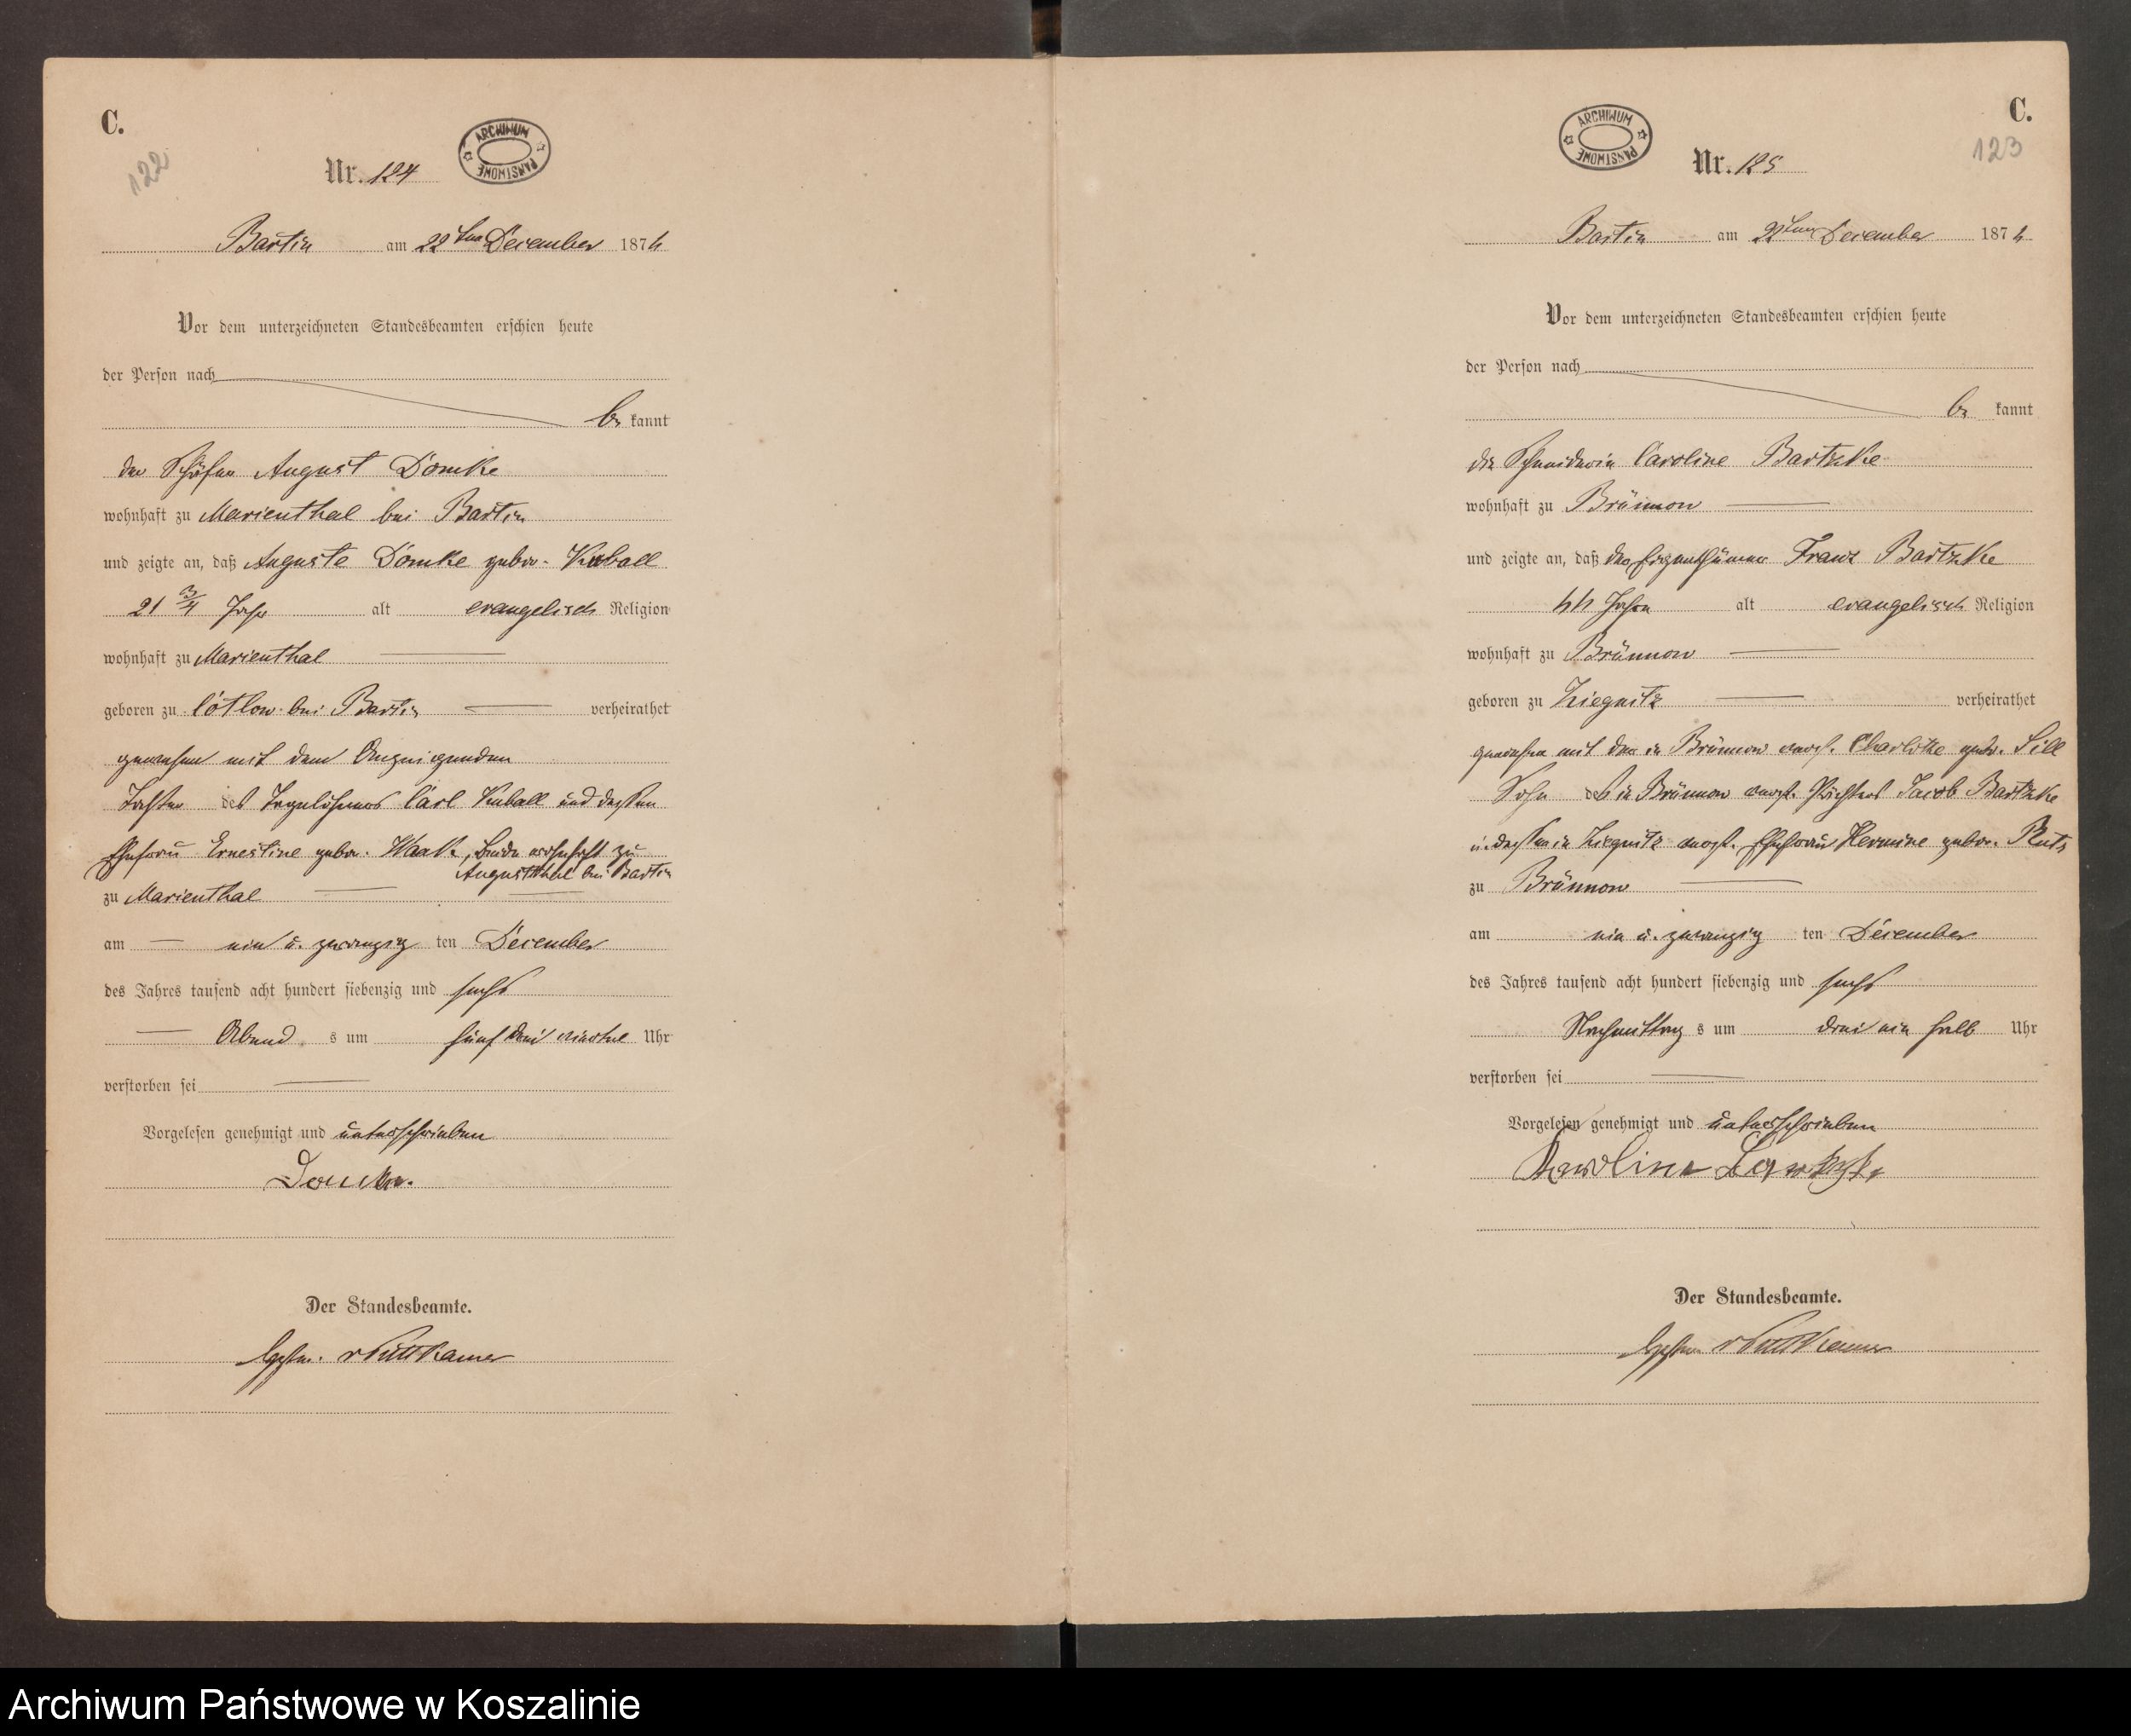 C.
122
Nr. 124
ARCHIWUM PAŃSTWOWE
Bartin am 22ten December 1876
Vor dem unterzeichneten Standesbeamten erschien heute
der Person nach
be kannt
der Schäfer August Domke
wohnhaft zu Marienthal bei Bartin
und zeigte an, daß Auguste Domke gebor. Kuball
21 3/4 Jahr alt evangelisch Religion
wohnhaft zu Marienthal
geboren zu Cötlow bei Bartin verheirathet
gewesen mit dem Anzeigenden
Tochter des Tagelöhners Carl Kuball und dessen
Ehefrau Ernestine gebor. Haak, beide wohnhaft zu
Augustthal bei Bartin
zu Marienthal
am ein u. zwanzig ten December
des Jahres tausend acht hundert siebenzig und sechs
Abend s um fünf drei viertel Uhr
verstorben sei
Vorgelesen genehmigt und unterschrieben
Domke.
Der Standesbeamte.
v Puttkamer
C.
123
Nr. 125
ARCHIWUM PAŃSTWOWE
Bartin am 22ten December 1876
Vor dem unterzeichneten Standesbeamten erschien heute
der Person nach
be kannt
die Schneiderin Caroline Bartzke
wohnhaft zu Brünnow
und zeigte an, daß der Eigenthümer Franz Bartzke
44 Jahre alt evangelisch Religion
wohnhaft zu Brünnow
geboren zu Ziegnitz verheirathet
gewesen mit der in Brünnow verst. Charlotte geb. Sill
Sohn des in Brünnow verst. Pächters Jacob Bartzke
u. dessen in Ziegnitz verst. Ehefrau Hermine gebor.
zu Brünnow
am ein u. zwanzig ten December
des Jahres tausend acht hundert siebenzig und sechs
Nachmittag s um drei ein halb Uhr
verstorben sei
Vorgelesen genehmigt und unterschrieben
Karoline Bartzke
Der Standesbeamte.
v Puttkamer
Archiwum Państwowe w Koszalinie